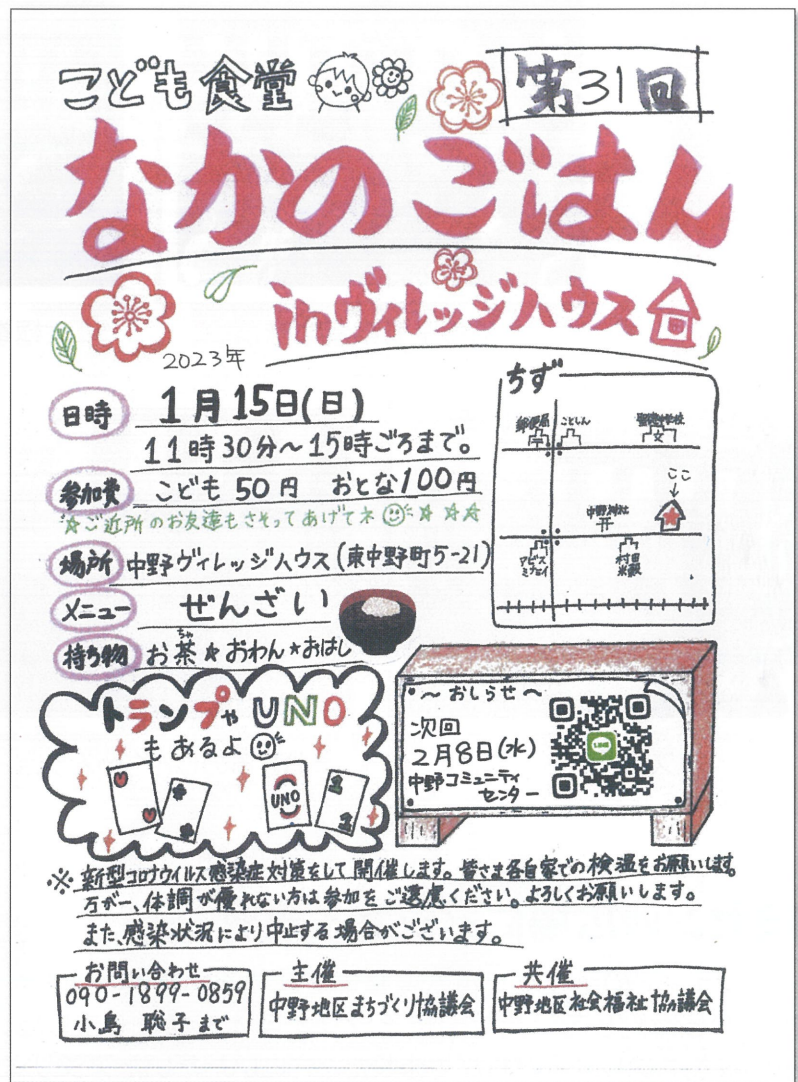 こども食堂
第31回
なかのごはん
inヴィレッジハウス
2023年
日時 1月15日(日)
11時30分〜15時ごろまで。
参加費 こども 50円 おとな100円
☆ご近所のお友達もさそってあげてネ☆☆☆
場所 中野ヴィレッジハウス(東中野町5-21)
メニュー ぜんざい
持ち物 お茶☆おわん☆おはし
ちゃ
ちず
郵便局 ことしん
ここ
中野神社
村田米穀
トランプやUNO
もあるよ
UNO
〜おしらせ〜
次回
2月8日(水)
中野コミュニティ
センター
LINE
※新型コロナウイルス感染症対策をして開催します。皆さま各自家での検温をお願いします。
万が一、体調が優れない方は参加をご遠慮ください。よろしくお願いします。
また、感染状況により中止する場合がございます。
お問い合わせ
090-1899-0859
小島 聡子まで
主催
中野地区まちづくり協議会
共催
中野地区社会福祉協議会